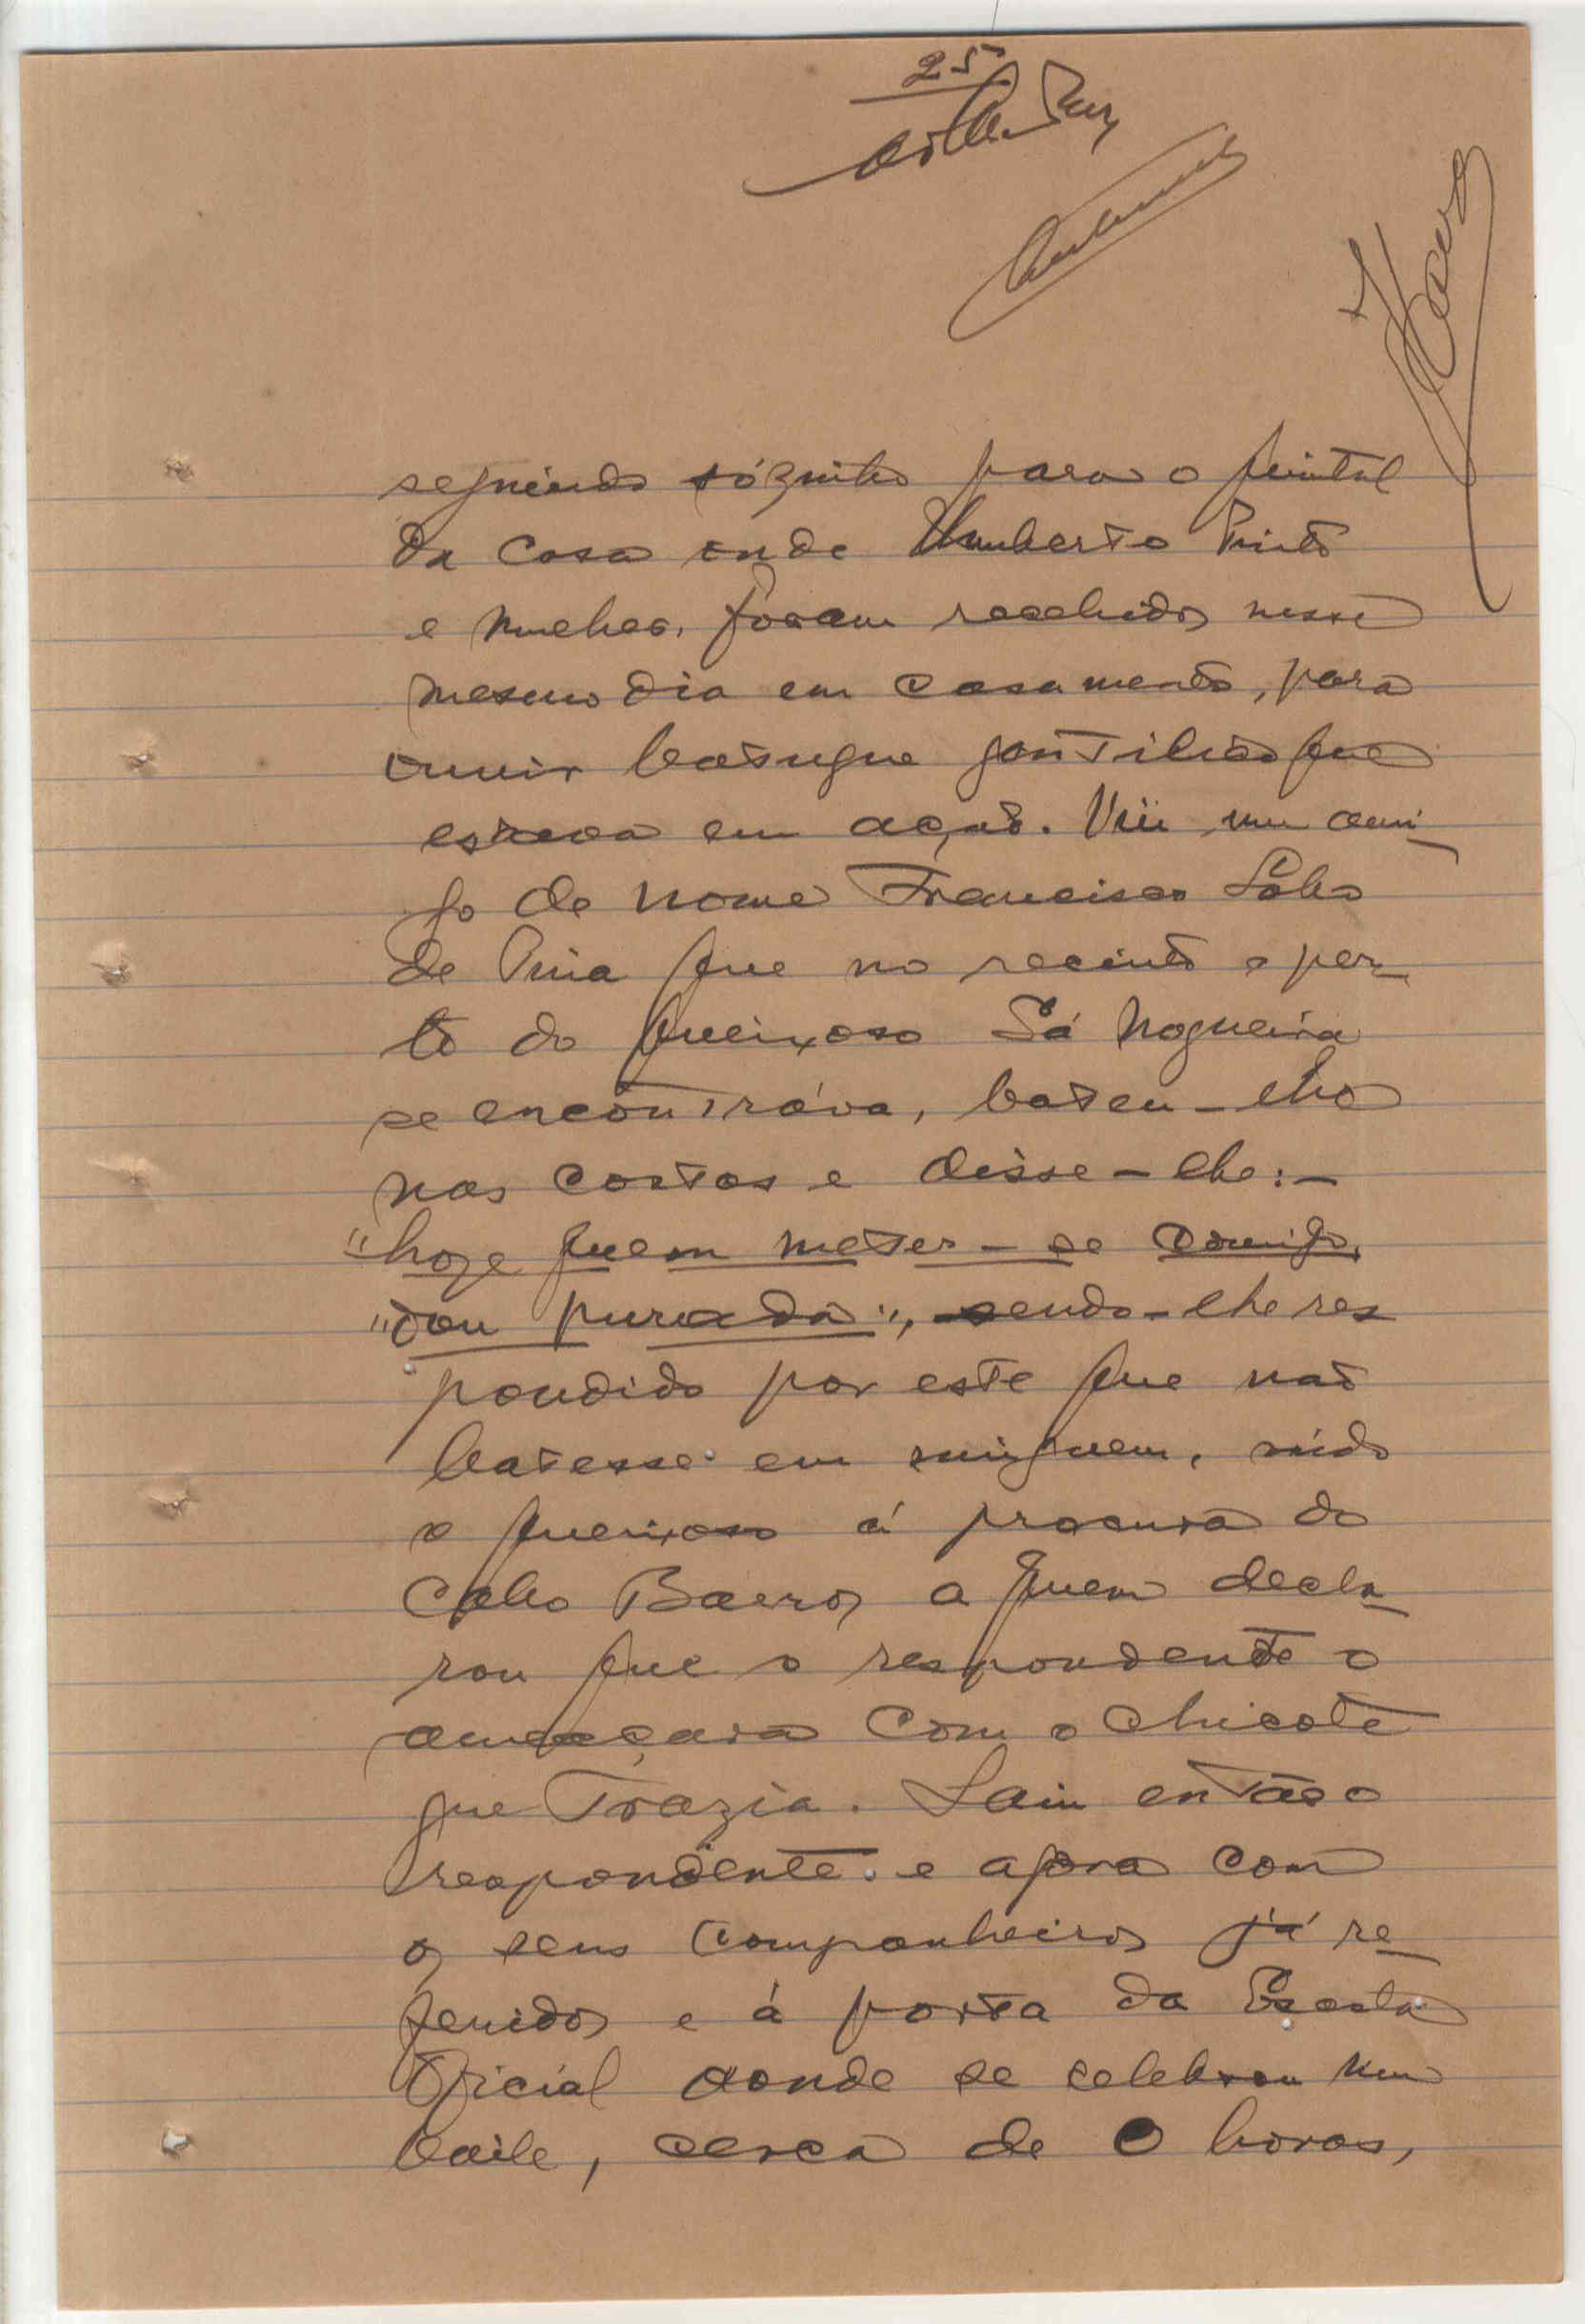 25
seguindo sózinho para o quintal
da casa onde Humberto Pinto
e mulher, foram recebidos nesse
mesmo dia em casamento, para
ouvir batuque gentilico que
estava em acção. Viu um ami-
go de nome Francisco Lobo
de Pina que no recinto e per-
to do queixoso Sá Nogueira
se encontráva, bateu-lhe
nas costas e disse-lhe:-
"hoje quem meter-se comigo,
"dou purada", sendo-lhe res
pondido por este que não
batesse em ninguem, indo
o queixoso á procura do
Cabo Barros a quem decla-
rou que o respondente o
ameaçara com o chicote
que trazia. Saiu então o
respondente e agora com
os seus companheiros já re-
feridos e á porta da Escola
Oficial aonde se celebrou um
baile, cerca de 0 horas,